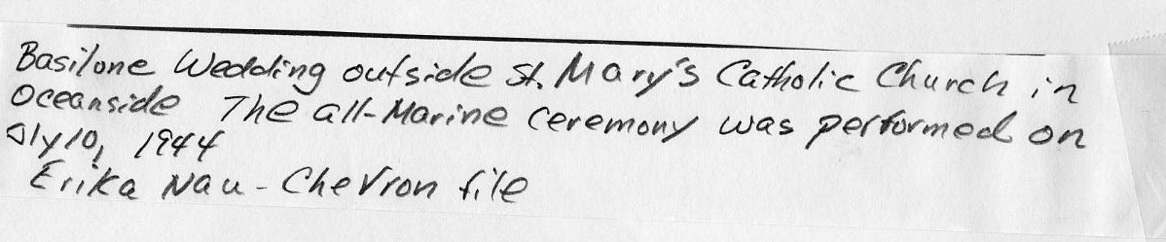 Basilone Wedding outside St. Mary's Catholic Church in
Oceanside The all-Marine ceremony was performed on
Jly 10, 1944
Erika Nau - Chevron file